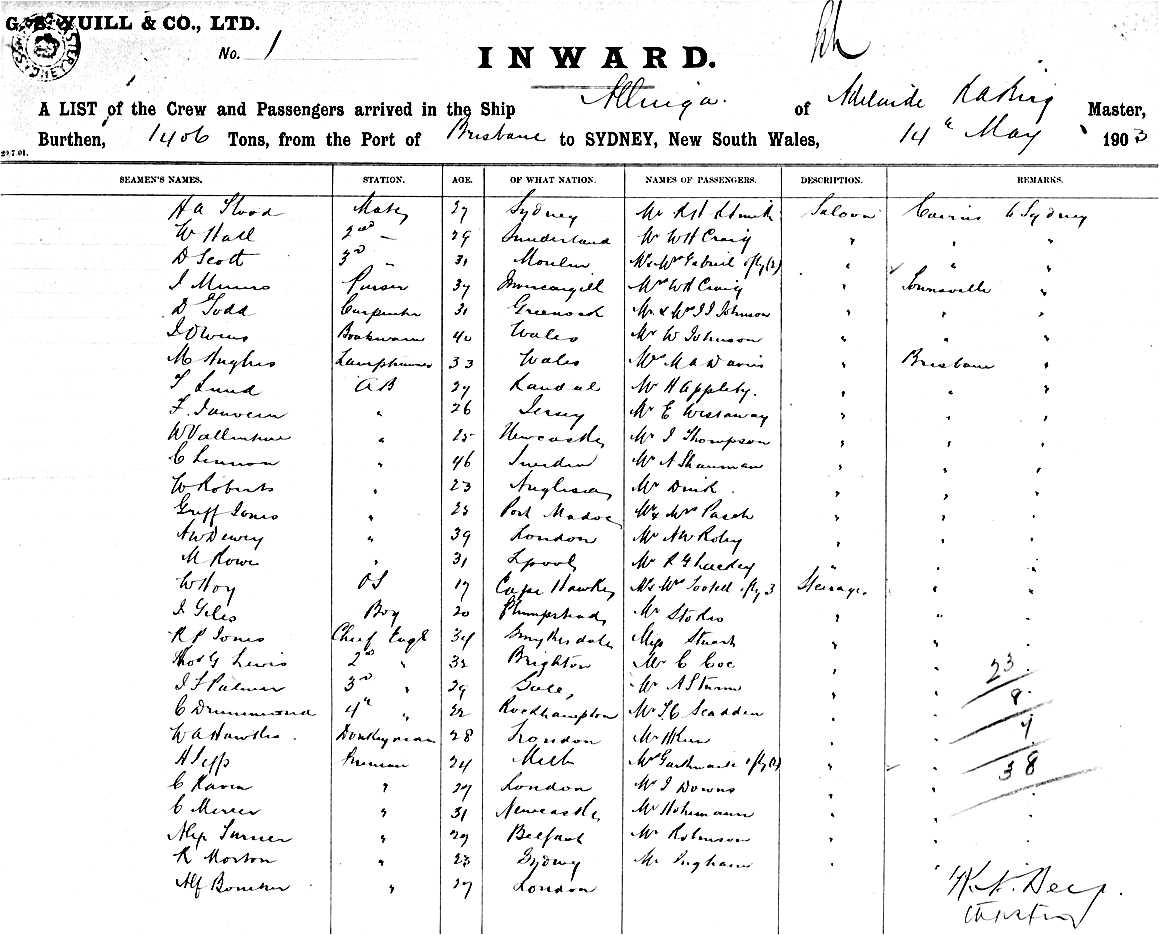 G. S. YUILL & CO., LTD.
No. 1
INWARD.
A LIST of the Crew and Passengers arrived in the Ship Allinga. of Adelaide Master,
Burthen, 1406 Tons, from the Port of Brisbane to SYDNEY, New South Wales, 14th May 1903
29.7.01.
SEAMEN'S NAMES. STATION. AGE. OF WHAT NATION. NAMES OF PASSENGERS. DESCRIPTION. REMARKS.
H A Mate 27 Sydney Mr Saloon Cairns to Sydney
W Hall 2nd — 29 Sunderland Mr W H Craig " " "
D Scott 3rd " 31 Mr & Mrs Gabriel & fly (2) " " "
J Purser 37 Invercargill Mrs W H Craig " Townsville "
D Todd Carpenter 31 Greenock Mr & Mrs J J Johnson " " "
J Owens 40 Wales Mr W Johnson " " "
M Hughes Lamptrimmer 33 Wales M A Davis " Brisbane "
T Lund AB 27 Mr H Appleby. " " "
F. " 26 Jersey Mr E Westaway " " "
W " 25 Newcastle Mr J Thompson " " "
C Lennon " 46 Sweden Mr A " " "
W Roberts " 23 Anglesea Mr " " "
Griff Jones " 23 Port Madoc Mr & Mrs " " "
A W Dewey " 39 London Mr A W Roby " " "
M Rowe " 31 Lpool Mr R " " "
W Hoy OS 17 Cape Hawke Mr & Mrs & fly 3 Steerage " "
J Giles Boy 20 Plumpstead Mr Stokes " " "
R P Jones Chief Engr 34 Smythesdale Miss Stuart " " "
Thos G Lewis 2nd " 32 Brighton Mr C Coe " " 23
J F Palmer 3rd " 29 Sale Mr A Sturm " " 9
C Drummond 4th " 22 Rockhampton Mr Scadden " "
W A Hawkes. Donkeyman 28 London Mr " " 4
H Jepp Fireman 24 Melb " " 38
C Raven " 27 London Mr J Downs " "
C Mercer " 31 Newcastle Mr " "
Alex Turner " 29 Belfast Mr Robinson " "
R Morton " 23 Sydney Mr Ingham " "
Alf " 27 London